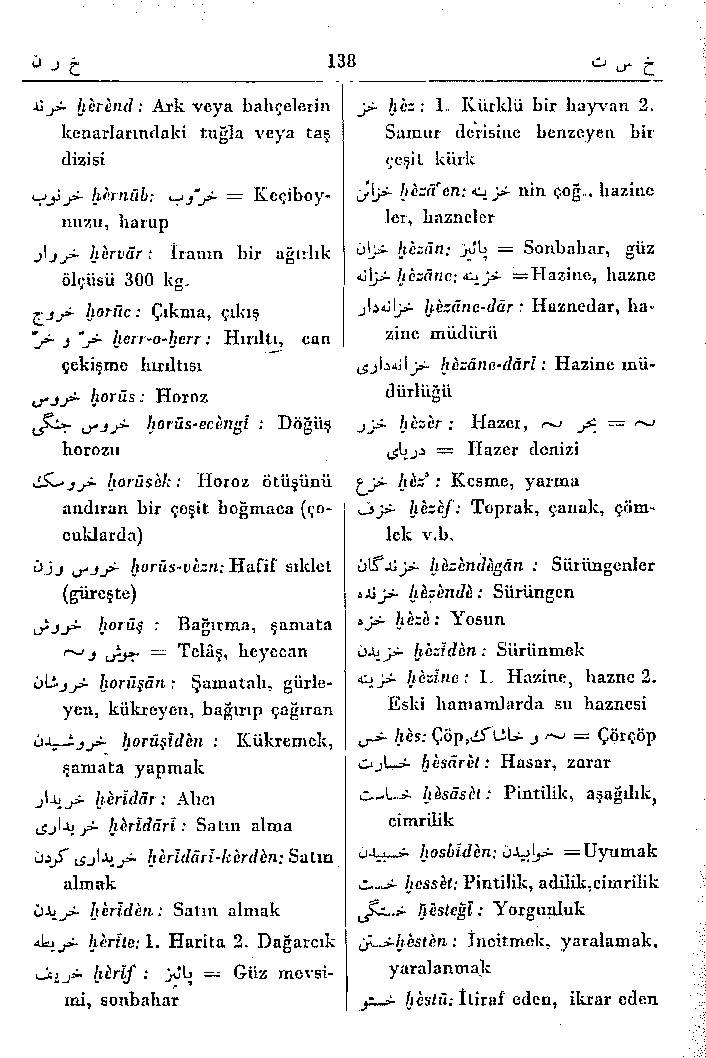 خ ر ن
138
خ س ت
خرند hèrènd : Ark veya bahçelerin
kenarlarındaki tuğla veya taş
dizisi
خرنوب hèrnûb: خرّوب = Keçiboy-
nuzu, harup
خروار hèrvâr : İranın bir ağırlık
ölçüsü 300 kg.
خروج horûc : Çıkma, çıkış
خرّ و خرّ herr-o-herr : Hırıltı, can
çekişme hırıltısı
خروس horûs : Horoz
خروس جنگی horûs-ecèngî : Döğüş
horozu
خروسک horûsèk : Horoz ötüşünü
andıran bir çeşit boğmaca (ço-
cuklarda)
خروس وزن horûs-vèzn: Hafif sıklet
(güreşte)
خروش horûş : Bağırma, şamata
جوش و ~ = Telâş, heyecan
خروشان horûşân : Şamatalı, gürle-
yen, kükreyen, bağırıp çağıran
خروشیدن horûşîdèn : Kükremek,
şamata yapmak
خریدار hèrîdâr : Alıcı
خریداری hèrîdârî : Satın alma
خریداری کردن hèrîdârî-kèrdèn: Satın
almak
خریدن hèrîdèn : Satın almak
خریطه hèrîte: 1. Harita 2. Dağarcık
خریف hèrîf : پائیز = Güz mevsi-
mi, sonbahar
خز hèz : 1. Kürklü bir hayvan 2.
Samur derisine benzeyen bir
çeşit kürk
خزائن hèzâ'en: خزینه nin çoğ., hazine
ler, hazneler
خزان hèzân: پائیز = Sonbahar, güz
خزانه hèzâne: خزینه =Hazine, hazne
خزانه‌دار hèzâne-dâr : Haznedar, ha-
zine müdürü
خزانه‌داری hèzâne-dârî : Hazine mü-
dürlüğü
خزر hèzèr : Hazer, ~ بحر = ~
دریای = Hazer denizi
خزع hèz' : Kesme, yarma
خزف hèzèf : Toprak, çanak, çöm-
lek v.b.
خزندگان hèzèndègân : Sürüngenler
خزنده hèzèndè : Sürüngen
خزه hèzè : Yosun
خزیدن hèzîdèn : Sürünmek
خزینه hèzîne : 1. Hazine, hazne 2.
Eski hamamlarda su haznesi
خس hès: Çöp, خاشاک و ~ = Çörçöp
خسارت hèsârèt : Hasar, zarar
خساست hèsâsèt : Pintilik, aşağılık,
cimrilik
خسبیدن hosbîdèn: خوابیدن =Uyumak
خست hessèt: Pintilik, adilik, cimrilik
خستگی hèstegî : Yorgunluk
خستن hèstèn : İncitmek, yaralamak,
yaralanmak
خستو hèstû: İtiraf eden, ikrar eden